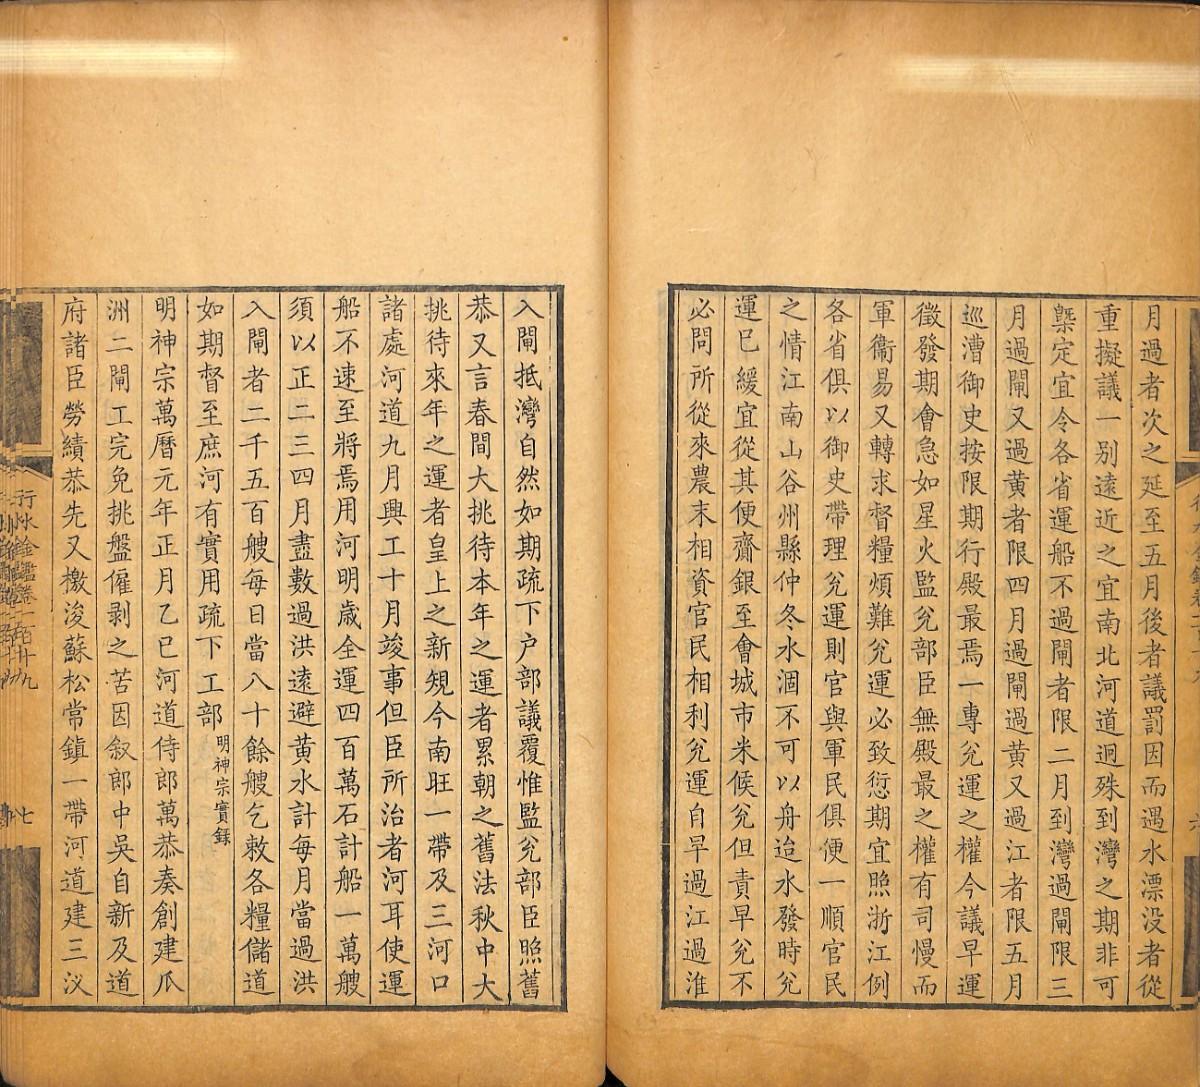 月過者次之延至五月後者議罰因而遇水漂没者從
重擬議一别遠近之宜南北河道迥殊到灣之期非可
槩定宜令各省運船不過閘者限二月到灣過閘限三
月過閘又過黄者限四月過閘過黄又過江者限五月
巡漕御史按限期行殿最焉一專兊運之權今議早運
徵發期會急如星火監兊部臣無殿最之權有司慢而
軍衞易又轉求督糧煩難兊運必致愆期宜照浙江例
各省俱以御史帶理兊運則官與軍民俱便一順官民
之情江南山谷州縣仲冬水涸不可以舟迨水發時兊
運已緩宜從其便齎銀至會城市米候兊但責早兊不
必問所從來農末相資官民相利兊運自早過江過淮
入閘抵灣自然如期疏下户部議覆惟監兊部臣照舊
恭又言春間大挑待本年之運者累朝之舊法秋中大
挑待來年之運者皇上之新䂓今南旺一帶及三河口
諸處河道九月興工十月竣事但臣所治者河耳使運
船不速至將焉用河明歳全運四百萬石計船一萬艘
須以正二三四月盡數過洪遠避黄水計每月當過洪
入閘者二千五百艘每日當八十餘艘乞敕各糧儲道
如期督至庶河有實用疏下工部明神宗實録
明神宗萬曆元年正月乙巳河道侍郎萬恭奏創建瓜
洲二閘工完免挑盤僱剥之苦因叙郎中吳自新及道
府諸臣勞績恭先又檄浚蘇松常鎮一帶河道建三汊
行水金鑑卷一百十九
七